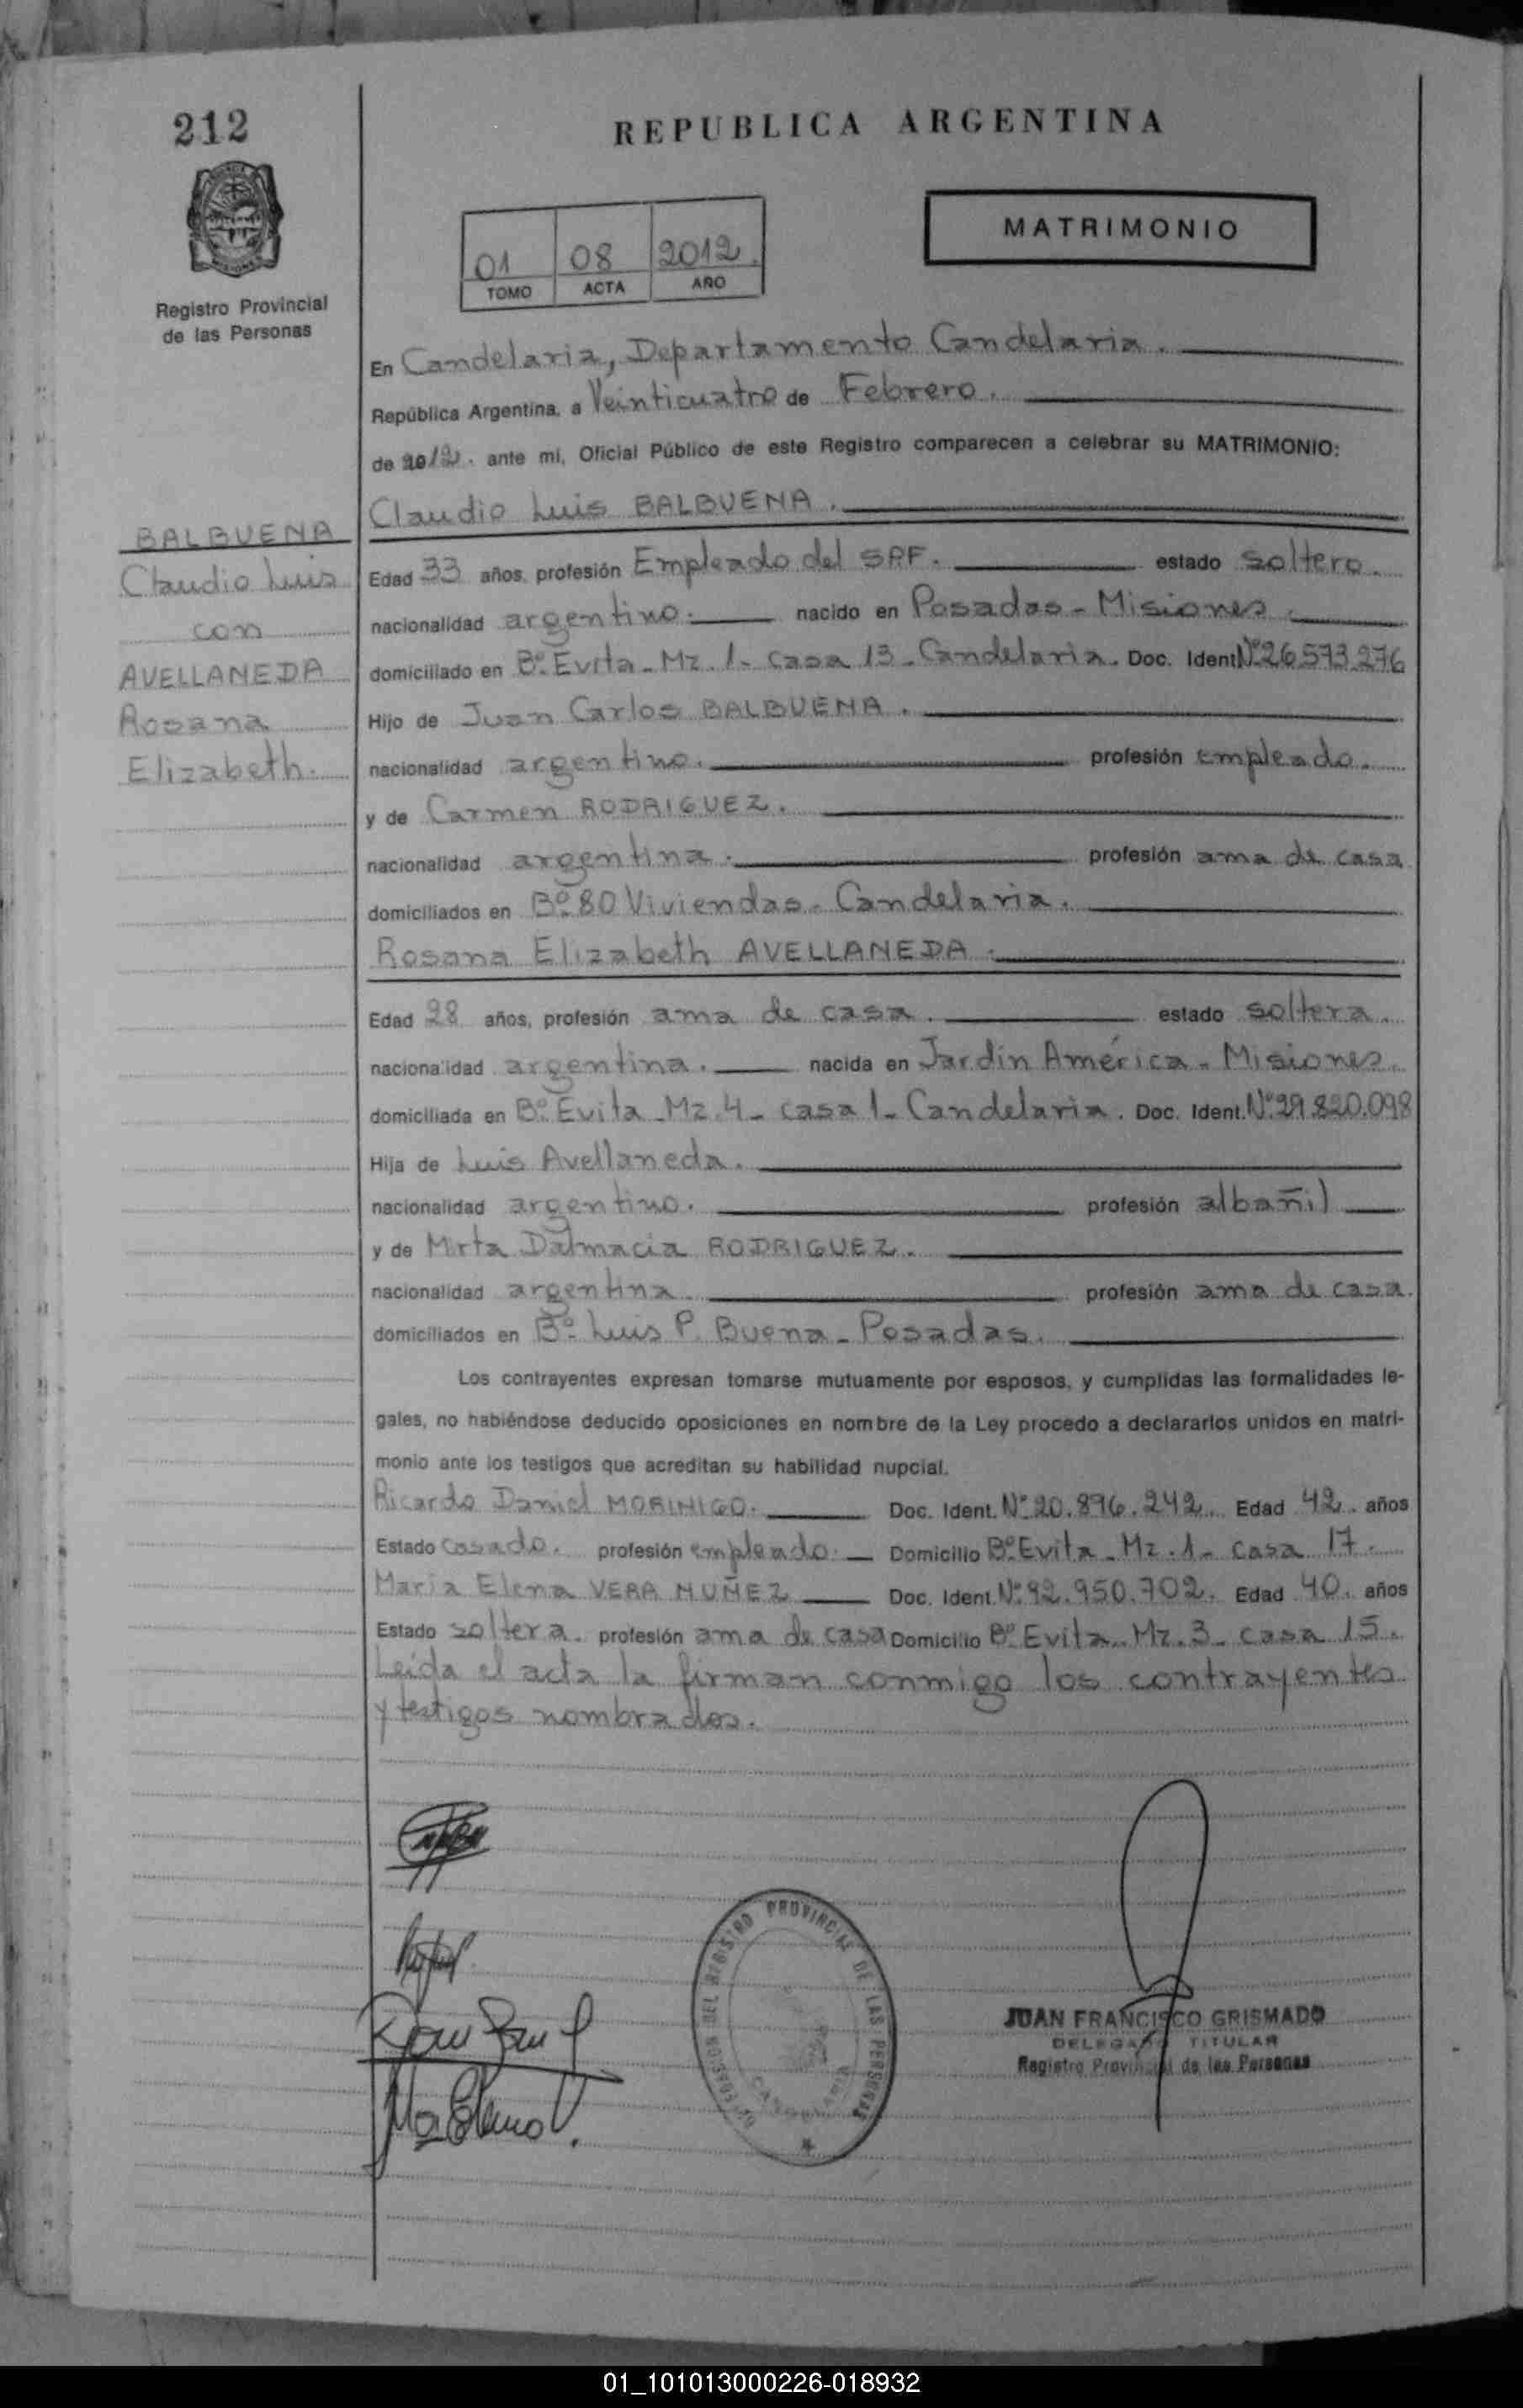 212
REPUBLICA ARGENTINA
MATRIMONIO
01 08 2012.
TOMO ACTA AÑO
Registro Provincial
de las Personas
En Candelaria, Departamento Candelaria.
República Argentina, a Veinticuatro de Febrero.
de 2012. ante mí, Oficial Público de este Registro comparecen a celebrar su MATRIMONIO:
Claudio Luis BALBUENA.
BALBUENA
Claudio Luis
con
AVELLANEDA
Rosana
Elizabeth.
Edad 33 años, profesión Empleado del SPF. estado soltero.
nacionalidad argentino. nacido en Posadas - Misiones.
domiciliado en Bº Evita - Mz. 1 - casa 13 - Candelaria. Doc. Ident. Nº 26.573.276
Hijo de Juan Carlos BALBUENA.
nacionalidad argentino. profesión empleado.
y de Carmen RODRIGUEZ.
nacionalidad argentina. profesión ama de casa
domiciliados en Bº 80 Viviendas - Candelaria.
Rosana Elizabeth AVELLANEDA.
Edad 28 años, profesión ama de casa. estado soltera.
nacionalidad argentina. nacida en Jardín América - Misiones.
domiciliada en Bº Evita - Mz. 4 - casa 1 - Candelaria. Doc. Ident. Nº 29.820.098
Hija de Luis Avellaneda.
nacionalidad argentino. profesión albañil
y de Mirta Dalmacia RODRIGUEZ.
nacionalidad argentina. profesión ama de casa.
domiciliados en Bº Luis P. Buena - Posadas.
Los contrayentes expresan tomarse mutuamente por esposos, y cumplidas las formalidades le-
gales, no habiéndose deducido oposiciones en nombre de la Ley procedo a declararlos unidos en matri-
monio ante los testigos que acreditan su habilidad nupcial.
Ricardo Daniel MORINIGO. Doc. Ident. Nº 20.896.242. Edad 42. años
Estado casado. profesión empleado. Domicilio Bº Evita - Mz. 1 - casa 17.
Maria Elena VERA MUÑEZ Doc. Ident. Nº 92.950.702. Edad 40. años
Estado soltera. profesión ama de casa Domicilio Bº Evita - Mz. 3 - casa 15.
Leida el acta la firman conmigo los contrayentes
y testigos nombrados.
DEL REGISTRO PROVINCIAL DE LAS PERSONAS
CANDELARIA
JUAN FRANCISCO GRISMADO
DELEGADO TITULAR
Registro Provincial de las Personas
01_101013000226-018932